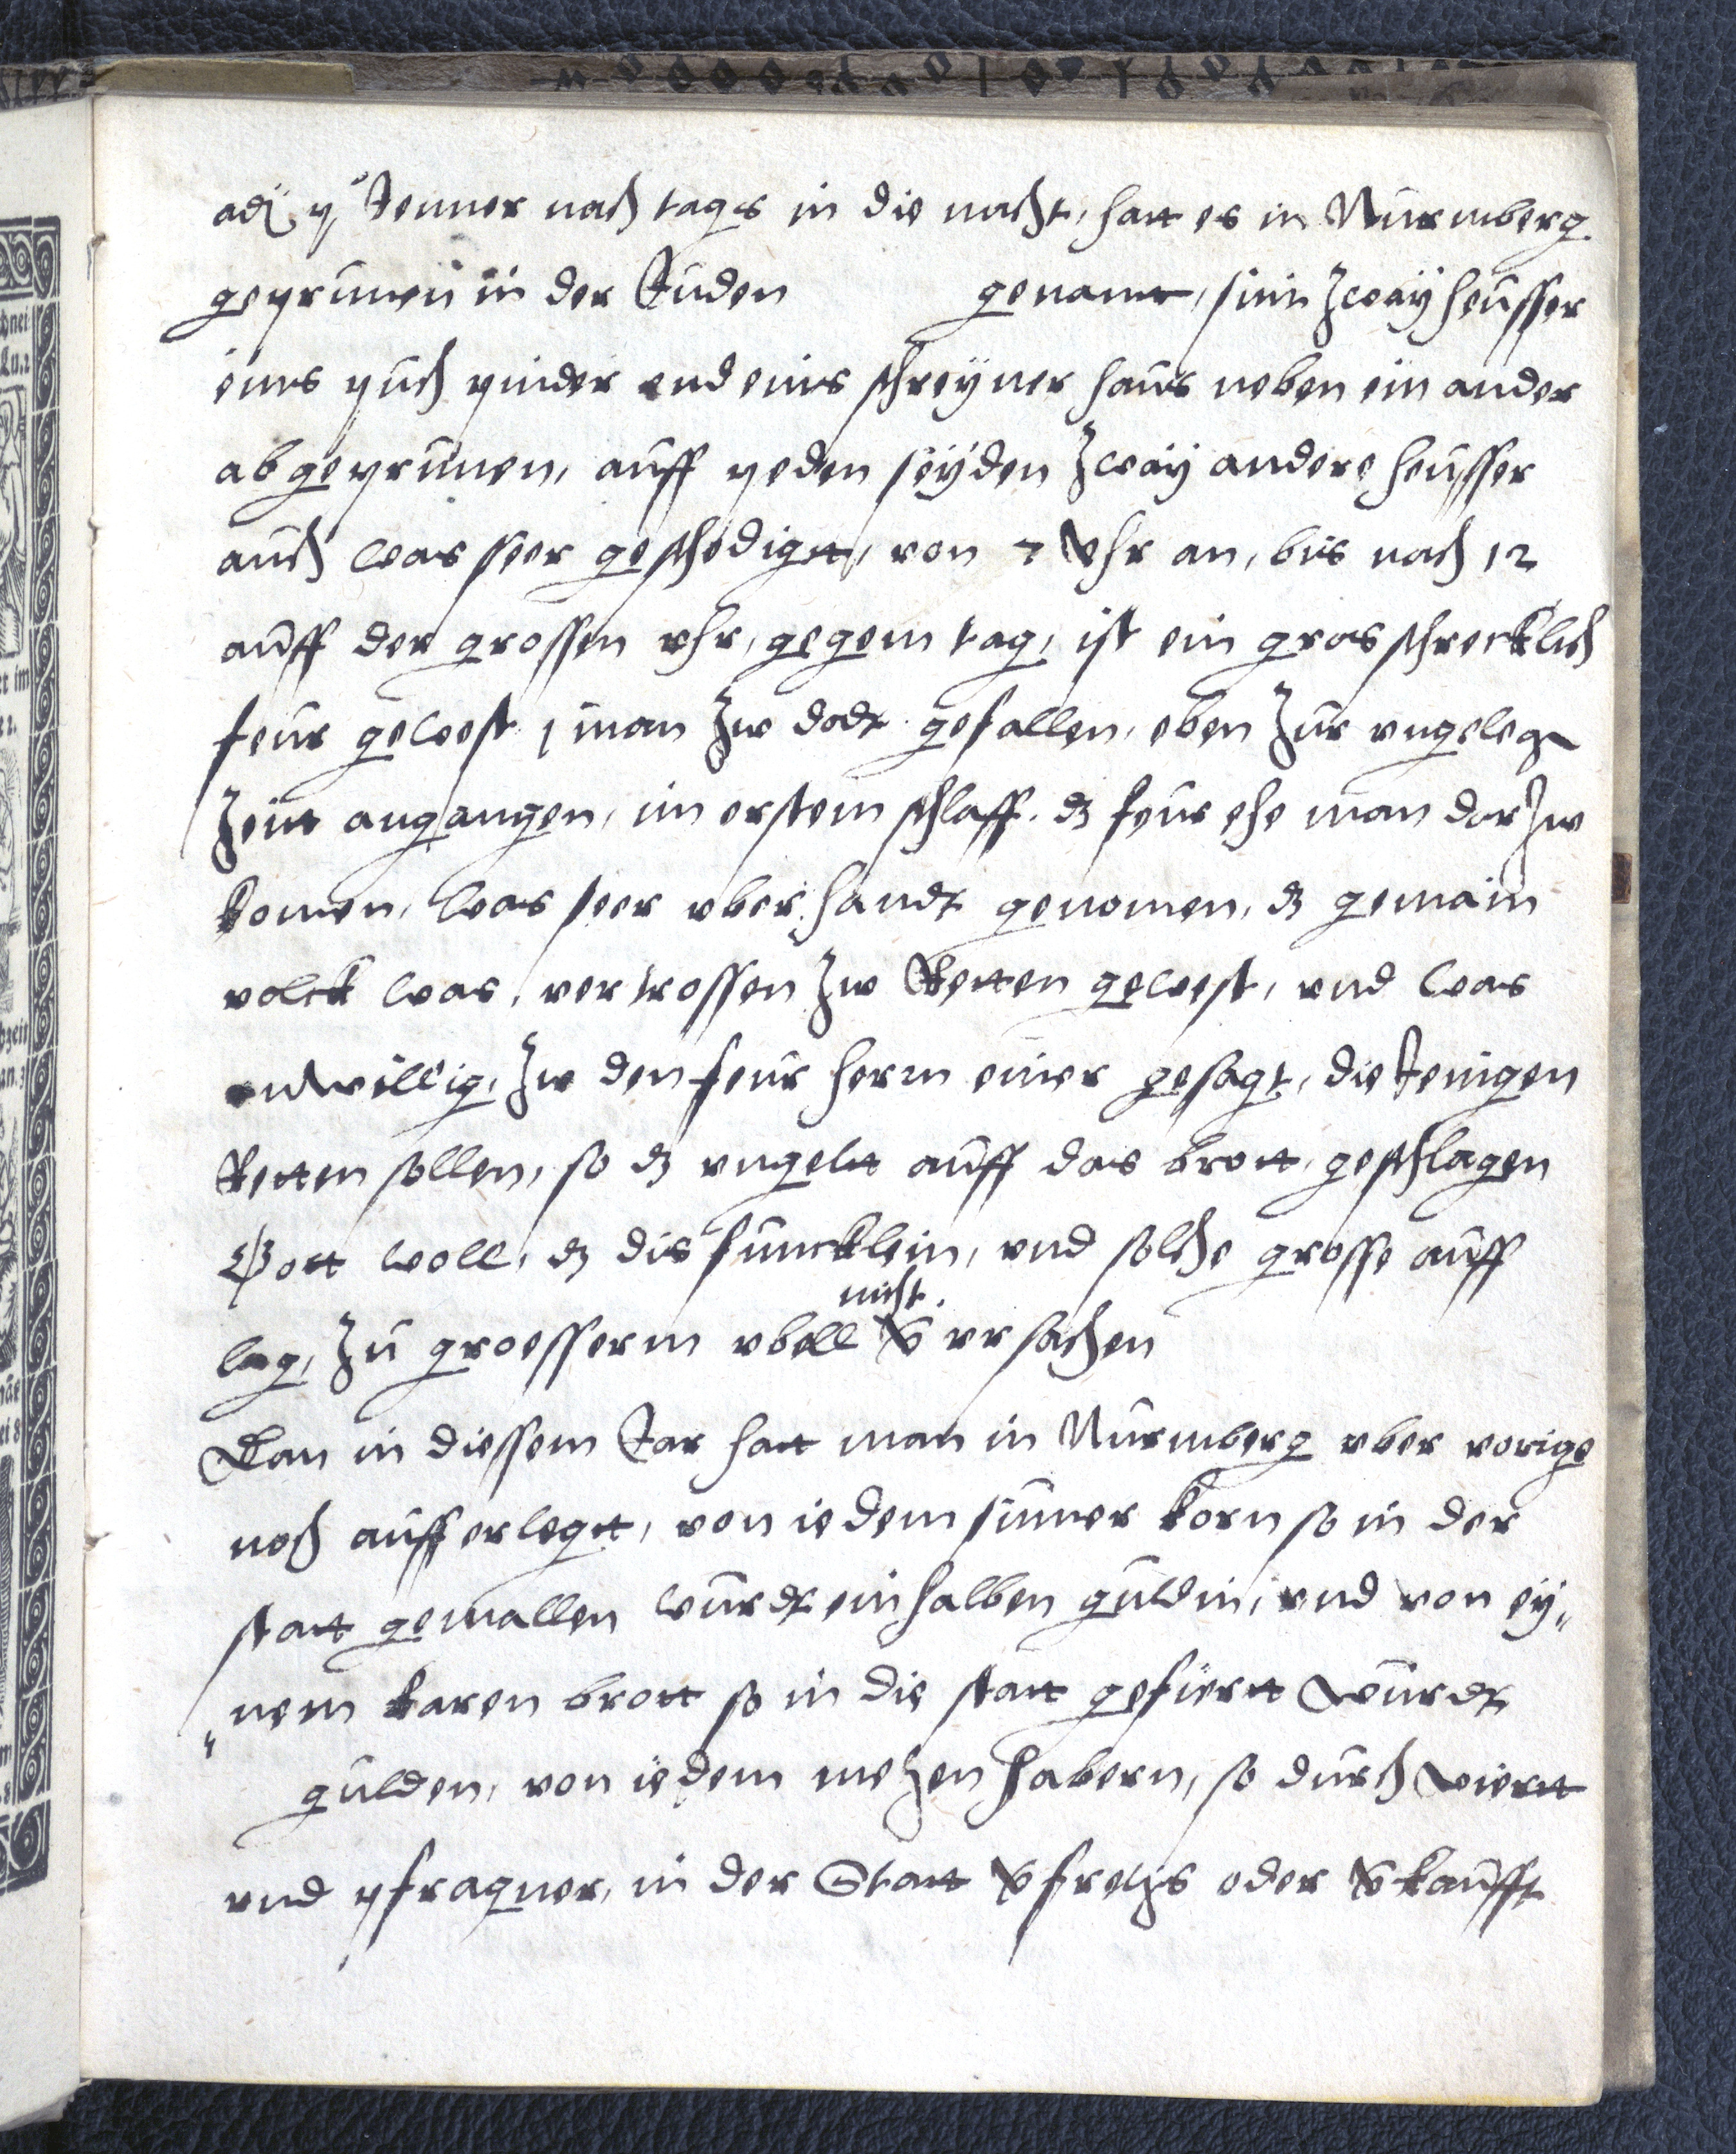 adj 4 Jenner nach tags in die nacht, hatt es in Nürmberg
geprünen in der Jüden genannt, sint zwaÿ heüsser
eins püch pinder vnd eins schreÿner haüs neben ein ander
abgeprünen, aüff peden seÿden zwaÿ andere heüsser
aüch was seer geschedigtt, von 7 Vhr an, bis nach 12
aüff der grossen vhr, gegem tag, ist ein gros schrecklich
feür gewest 1 man zw dodt gefallen, eben zür vngelegn
zeitt angangen, im erstem schlaff. dz feür ehe man dar zw
komen, was seer vber handt genomen, dz gemain
volck was, vertrossen zw Retten gewest, vnd was
vnwillig, zw den feür herrn einer gesagt, die Jenigen
Retten sollen, so dz vngeltt aüff das brott, geschlagen
Gott woll, dz dis füncklein, vnd solche grosse aüff
nicht
lag, zü groesserm vbell vervrsachen
Dan in diessem Jar hatt man in Nürmberg vber vorige
noch aüfferlegtt, von iedem simer korn so in der
statt gemallen würdt ein halben güldin, vnd von eÿ„
„nem karen brott so in die statt gefüertt würdt
gülden, von iedem mezen habern, so dürch wiertt
vnd pfragner, in der Statt verfrezts oder verkaüfft